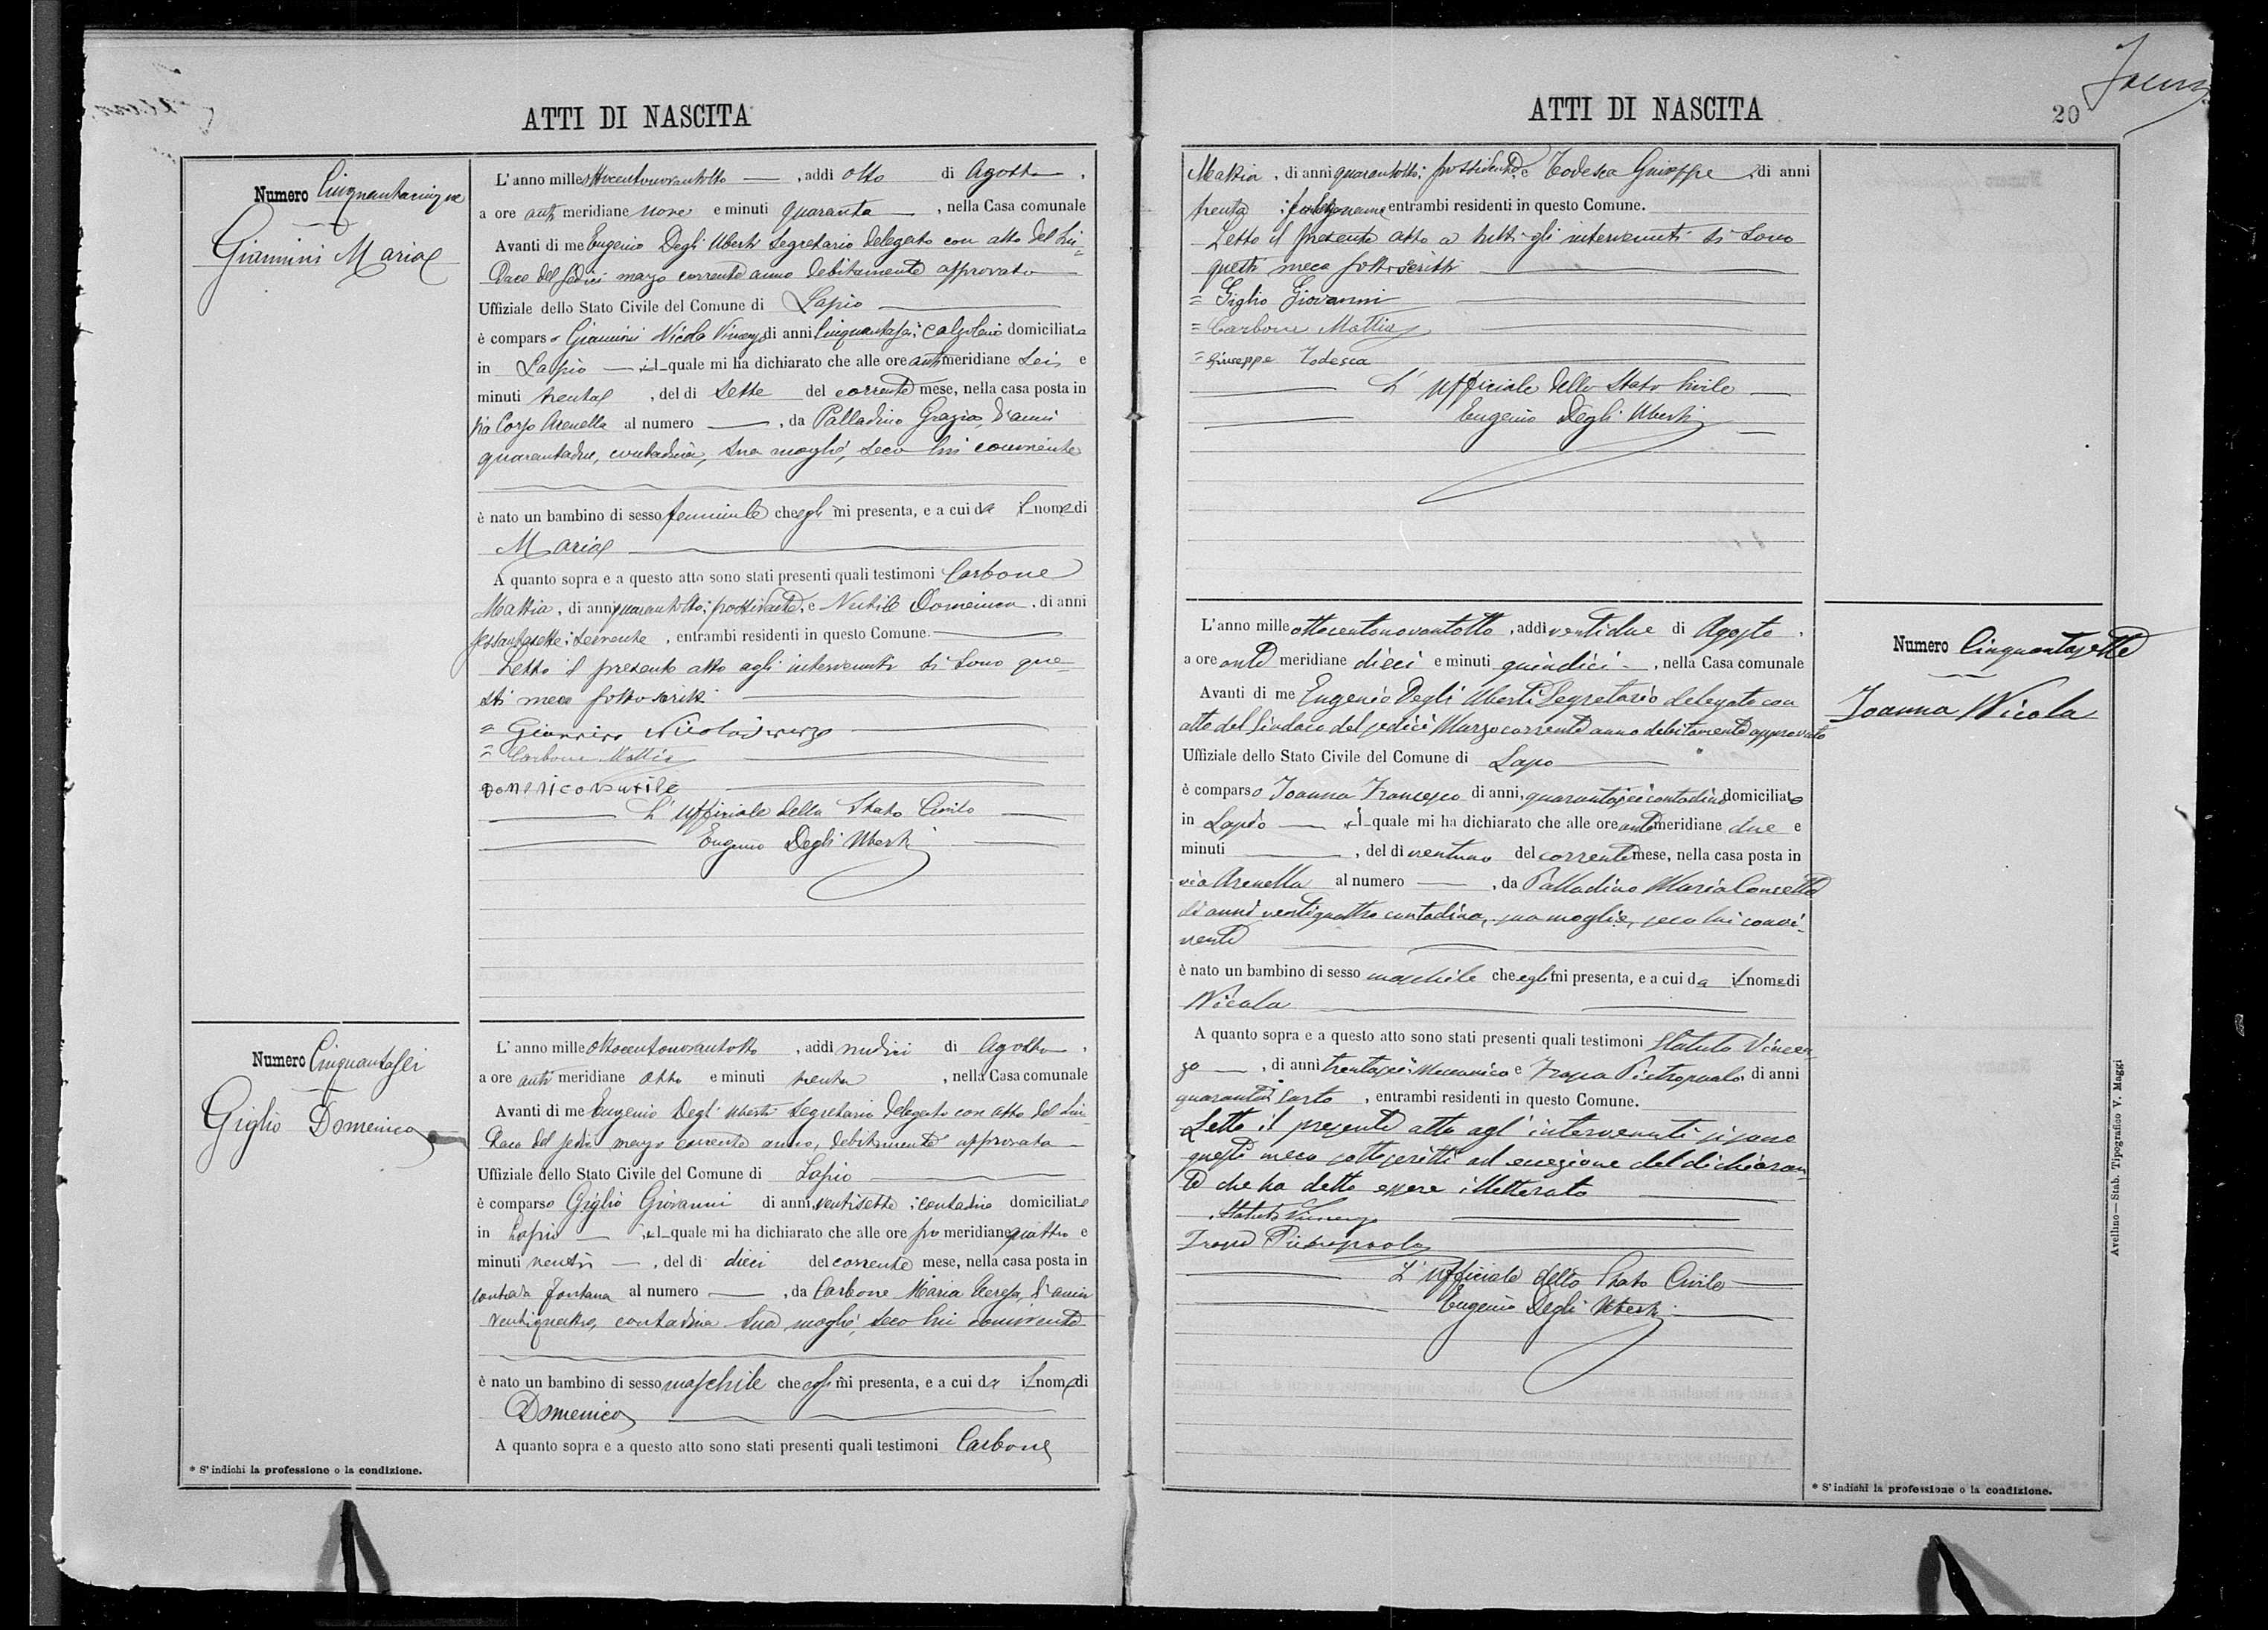 ATTI DI NASCITA
Numero Cinquantacinque
Giannini Maria
L'anno milleottocentonovantotto, addi otto di Agosto,
a ore anti meridiane nove e minuti quaranta, nella Casa comunale
Avanti di me Eugenio Degli Uberti Segretario delegato con atto del Sin=
daco del sedici marzo corrente anno debitamente approvato
Uffiziale dello Stato Civile del Comune di Lapio
è comparso Giannini Nicola Vincenzo di anni cinquantasei; calzolaio domiciliato
in Lapio il quale mi ha dichiarato che alle ore anti meridiane sei e
minuti trenta, del di sette del corrente mese, nella casa posta in
via Corso Arenella al numero, da Palladino Grazia, d'anni
quarantadue, contadina, sua moglie, seco lui convivente
è nato un bambino di sesso femminile che egli mi presenta, e a cui da il nome di
Maria
A quanto sopra e a questo atto sono stati presenti quali testimoni Carbone
Mattia, di anni quarantotto; possidente, e Nutile Domenico, di anni
sessantasette; servente, entrambi residenti in questo Comune.
Letto il presente atto agli intervenuti si sono que=
sti meco sottoscritti
= Giannini Nicola
= Carbone Mattia
Domenico Nutile
L'Uffiziale dello Stato Civile
Eugenio Degli Uberti
Numero Cinquantasei
Giglio Domenico
L'anno milleottocentonovantotto, addi undici di Agosto,
a ore anti meridiane otto e minuti trenta, nella Casa comunale
Avanti di me Eugenio Degli Uberti Segretario delegato con atto del Sin=
daco del sedici marzo corrente anno, debitamente approvato
Uffiziale dello Stato Civile del Comune di Lapio
è comparso Giglio Giovanni di anni ventisette; contadino domiciliato
in Lapio il quale mi ha dichiarato che alle ore po meridiane quattro e
minuti venti, del di dieci del corrente mese, nella casa posta in
contrada Fontana al numero, da Carbone Maria Teresa, d'anni
ventiquattro, contadina sua moglie, seco lui convivente
è nato un bambino di sesso maschile che egli mi presenta, e a cui da il nome di
Domenico
A quanto sopra e a questo atto sono stati presenti quali testimoni Carbone
* S'indichi la professione o la condizione.
ATTI DI NASCITA
20
Mattia, di anni quarantotto; possidente, e Todesca Giuseppe, di anni
trenta; falegname, entrambi residenti in questo Comune.
Letto il presente atto a tutti gli intervenuti si sono
questi meco sottoscritti
= Giglio Giovanni
= Carbone Mattia
= Giuseppe Todesca
L'Ufficiale dello Stato Civile
Eugenio Degli Uberti
Numero Cinquantasette
Joanna Nicola
L'anno milleottocentonovantotto, addi ventidue di Agosto,
a ore ante meridiane dieci e minuti quindici, nella Casa comunale
Avanti di me Eugenio Degli Uberti Segretario delegato con
atto del Sindaco del sedici Marzo corrente anno debitamente approvato
Uffiziale dello Stato Civile del Comune di Lapo
è comparso Joanna Francesco di anni, quarantasei contadino domiciliato
in Lapio il quale mi ha dichiarato che alle ore ante meridiane due e
minuti, del di ventuno del corrente mese, nella casa posta in
via Arenella al numero, da Palladino Maria Concetta
di anni ventiquattro contadina, sua moglie, seco lui convi-
vente
è nato un bambino di sesso maschile che egli mi presenta, e a cui da il nome di
Nicola
A quanto sopra e a questo atto sono stati presenti quali testimoni Statuto Vincen
zo, di anni trentasei; Meccanico e Pietropaolo, di anni
quaranta sarto, entrambi residenti in questo Comune.
Letto il presente atto agl'intervenuti si sono
questi meco sottoscritti ad eccezione del dichiaran
te che ha detto essere illetterato
Statuto Vincenzo
Pietropaolo
L'Ufficiale dello Stato Civile
Eugenio Degli Uberti
* S'indichi la professione o la condizione.
Avellino — Stab. Tipografico V. Maggi